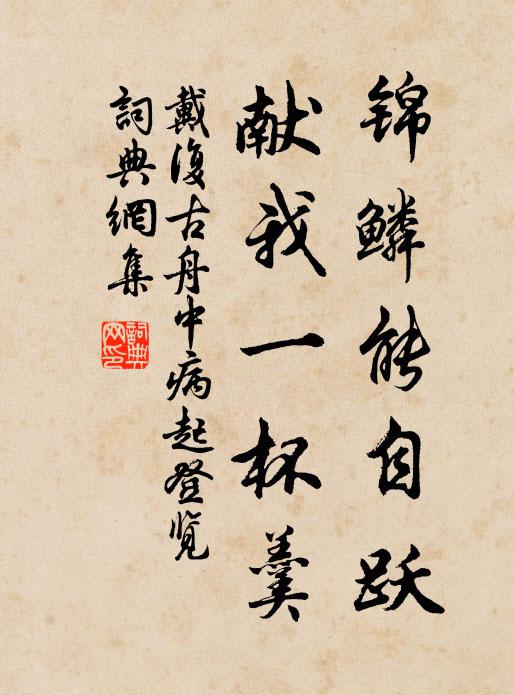 锦鳞能自跃
献我一杯羹
戴復古舟中病起登览
詞典網集
詞典
网印